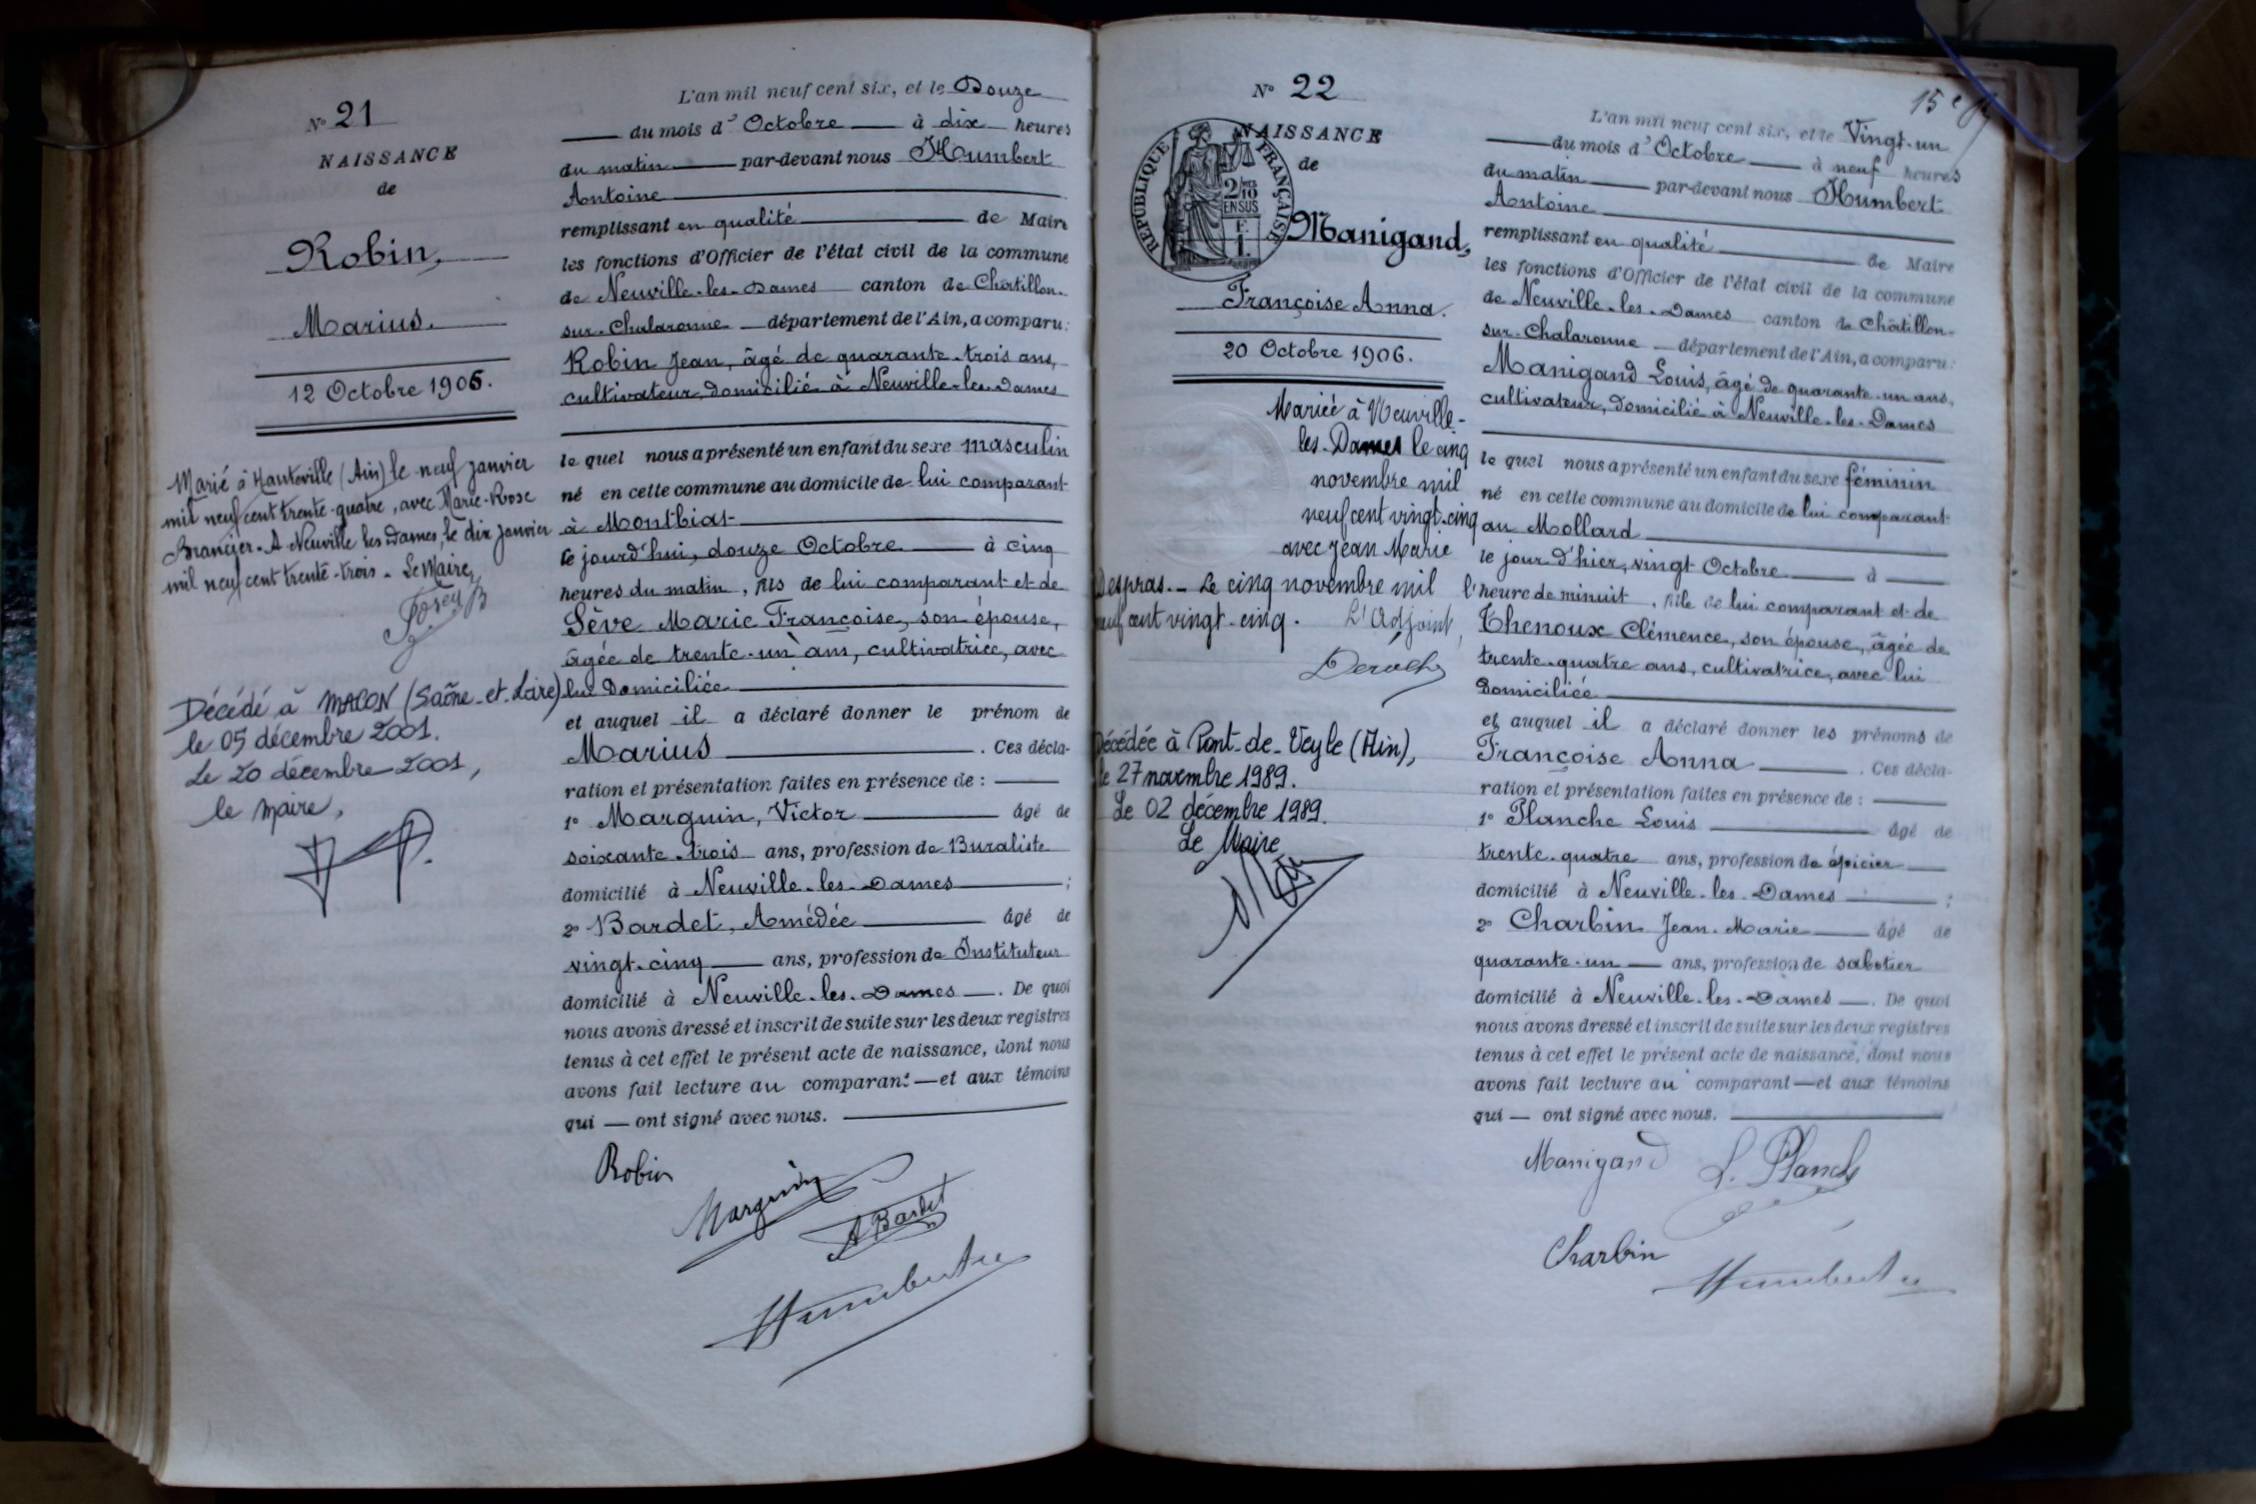 N° 21
NAISSANCE
de
Robin,
Marius.
12 Octobre 1906.
Marié à Hauteville (Ain) le neuf janvier
mil neuf cent trente-quatre, avec Marie-Rose
Brancier. A Neuville les Dames, le dix janvier
mil neuf cent trente-trois. Le Maire,
Décédé à MACON (Saône-et-Loire)
le 05 décembre 2001.
Le 20 décembre 2001,
le Maire,
L'an mil neuf cent six, et le Douze
du mois d'Octobre à dix heures
du matin par-devant nous Humbert
Antoine
remplissant en qualité de Maire
les fonctions d'Officier de l'état civil de la commune
de Neuville-les-Dames canton de Châtillon-
sur-Chalaronne département de l'Ain, a comparu:
Robin Jean, âgé de quarante-trois ans,
cultivateur, domicilié à Neuville-les-Dames
le quel nous a présenté un enfant du sexe masculin
né en cette commune au domicile de lui comparant
à Montbiat
le jourd'hui, douze Octobre à cinq
heures du matin, fils de lui comparant et de
Sève Marie Françoise, son épouse,
âgée de trente-un ans, cultivatrice, avec
lui domiciliée
et auquel il a déclaré donner le prénom de
Marius. Ces décla-
ration et présentation faites en présence de :
1° Marguin, Victor âgé de
soixante-trois ans, profession de Buraliste
domicilié à Neuville-les-Dames ;
2° Bardet, Amédée âgé de
vingt-cinq ans, profession de Instituteur
domicilié à Neuville-les-Dames. De quoi
nous avons dressé et inscrit de suite sur les deux registres
tenus à cet effet le présent acte de naissance, dont nous
avons fait lecture au comparant — et aux témoins
qui — ont signé avec nous.
Robin
Marguin
A Bardet
Humbert
N° 22
NAISSANCE
de
RÉPUBLIQUE FRANÇAISE
2/10 EN SUS
Manigand,
Françoise Anna.
20 Octobre 1906.
Mariée à Neuville-
les-Dames le cinq
novembre mil
neuf cent vingt-cinq
avec Jean Marie
Despras. - Le cinq novembre mil
neuf cent vingt-cinq. L'Adjoint,
Décédée à Pont-de-Veyle (Ain),
le 27 novembre 1989.
Le 02 décembre 1989.
Le Maire
15e
L'an mil neuf cent six, et le Vingt-un
du mois d'Octobre à neuf heures
du matin par-devant nous Humbert
Antoine
remplissant en qualité de Maire
les fonctions d'Officier de l'état civil de la commune
de Neuville-les-Dames canton de Châtillon-
sur-Chalaronne département de l'Ain, a comparu:
Manigand Louis, âgé de quarante-un ans,
cultivateur, domicilié à Neuville-les-Dames
le quel nous a présenté un enfant du sexe féminin
né en cette commune au domicile de lui comparant
au Mollard
le jour d'hier, vingt Octobre à
l'heure de minuit, fille de lui comparant et de
Thenoux Clémence, son épouse, âgée de
trente-quatre ans, cultivatrice, avec lui
domiciliée
et auquel il a déclaré donner les prénoms de
Françoise Anna. Ces décla-
ration et présentation faites en présence de :
1° Planche Louis âgé de
trente-quatre ans, profession de épicier
domicilié à Neuville-les-Dames ;
2° Charbin Jean-Marie âgé de
quarante-un ans, profession de sabotier
domicilié à Neuville-les-Dames. De quoi
nous avons dressé et inscrit de suite sur les deux registres
tenus à cet effet le présent acte de naissance, dont nous
avons fait lecture au comparant — et aux témoins
qui — ont signé avec nous.
Manigand
L. Planche
Charbin
Humbert